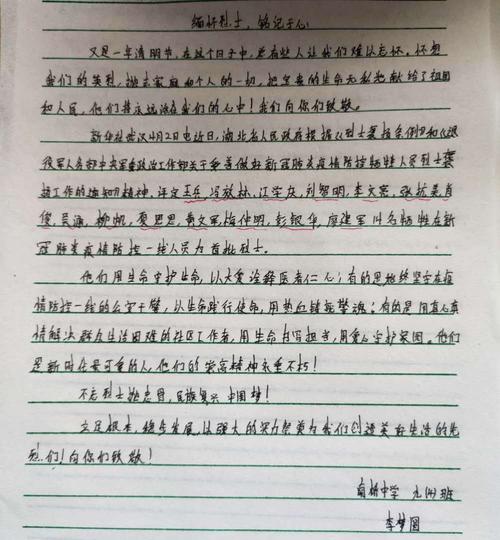 缅怀烈士，铭记于心
又是一年清明节，在这个日子中，总有些人让我们难以忘怀。怀念
我们的英烈，抛去家庭和个人的一切，把宝贵的生命无私地献给了祖国
和人民，他们将永远活在我们的心中！我们向你们致敬。
新华社武汉4月2日电近日，湖北省人民政府根据《烈士褒扬条例》和《退
役军人事务部中央军委政治工作部关于妥善做好新冠肺炎疫情防控牺牲人员烈士褒
扬工作的通知》精神，评定王兵，冯效林，江学庆，刘智明，李文亮，张抗美，肖
俊，吴涌，柳帆，夏思思，黄文军，梅仲明，彭银华，廖建军14名牺牲在新
冠肺炎疫情防控一线人员为首批烈士。
他们用生命守护生命，以大爱诠释医者仁心；有的是始终坚守在疫
情防控一线的公安干警，以生命践行使命，用热血铸就警魂；有的是用真心真
情解决群众生活困难的社区工作者，用生命书写担当，用爱心守护家园。他们
是新时代最可爱的人，他们的崇高精神永垂不朽！
不忘烈士抛忠骨，民族复兴中国梦！
立足根本，稳步发展，以强大的实力告慰为我们创造美好生活的先
烈们！向你们致敬！
南桥中学 九(4)班
李梦圆